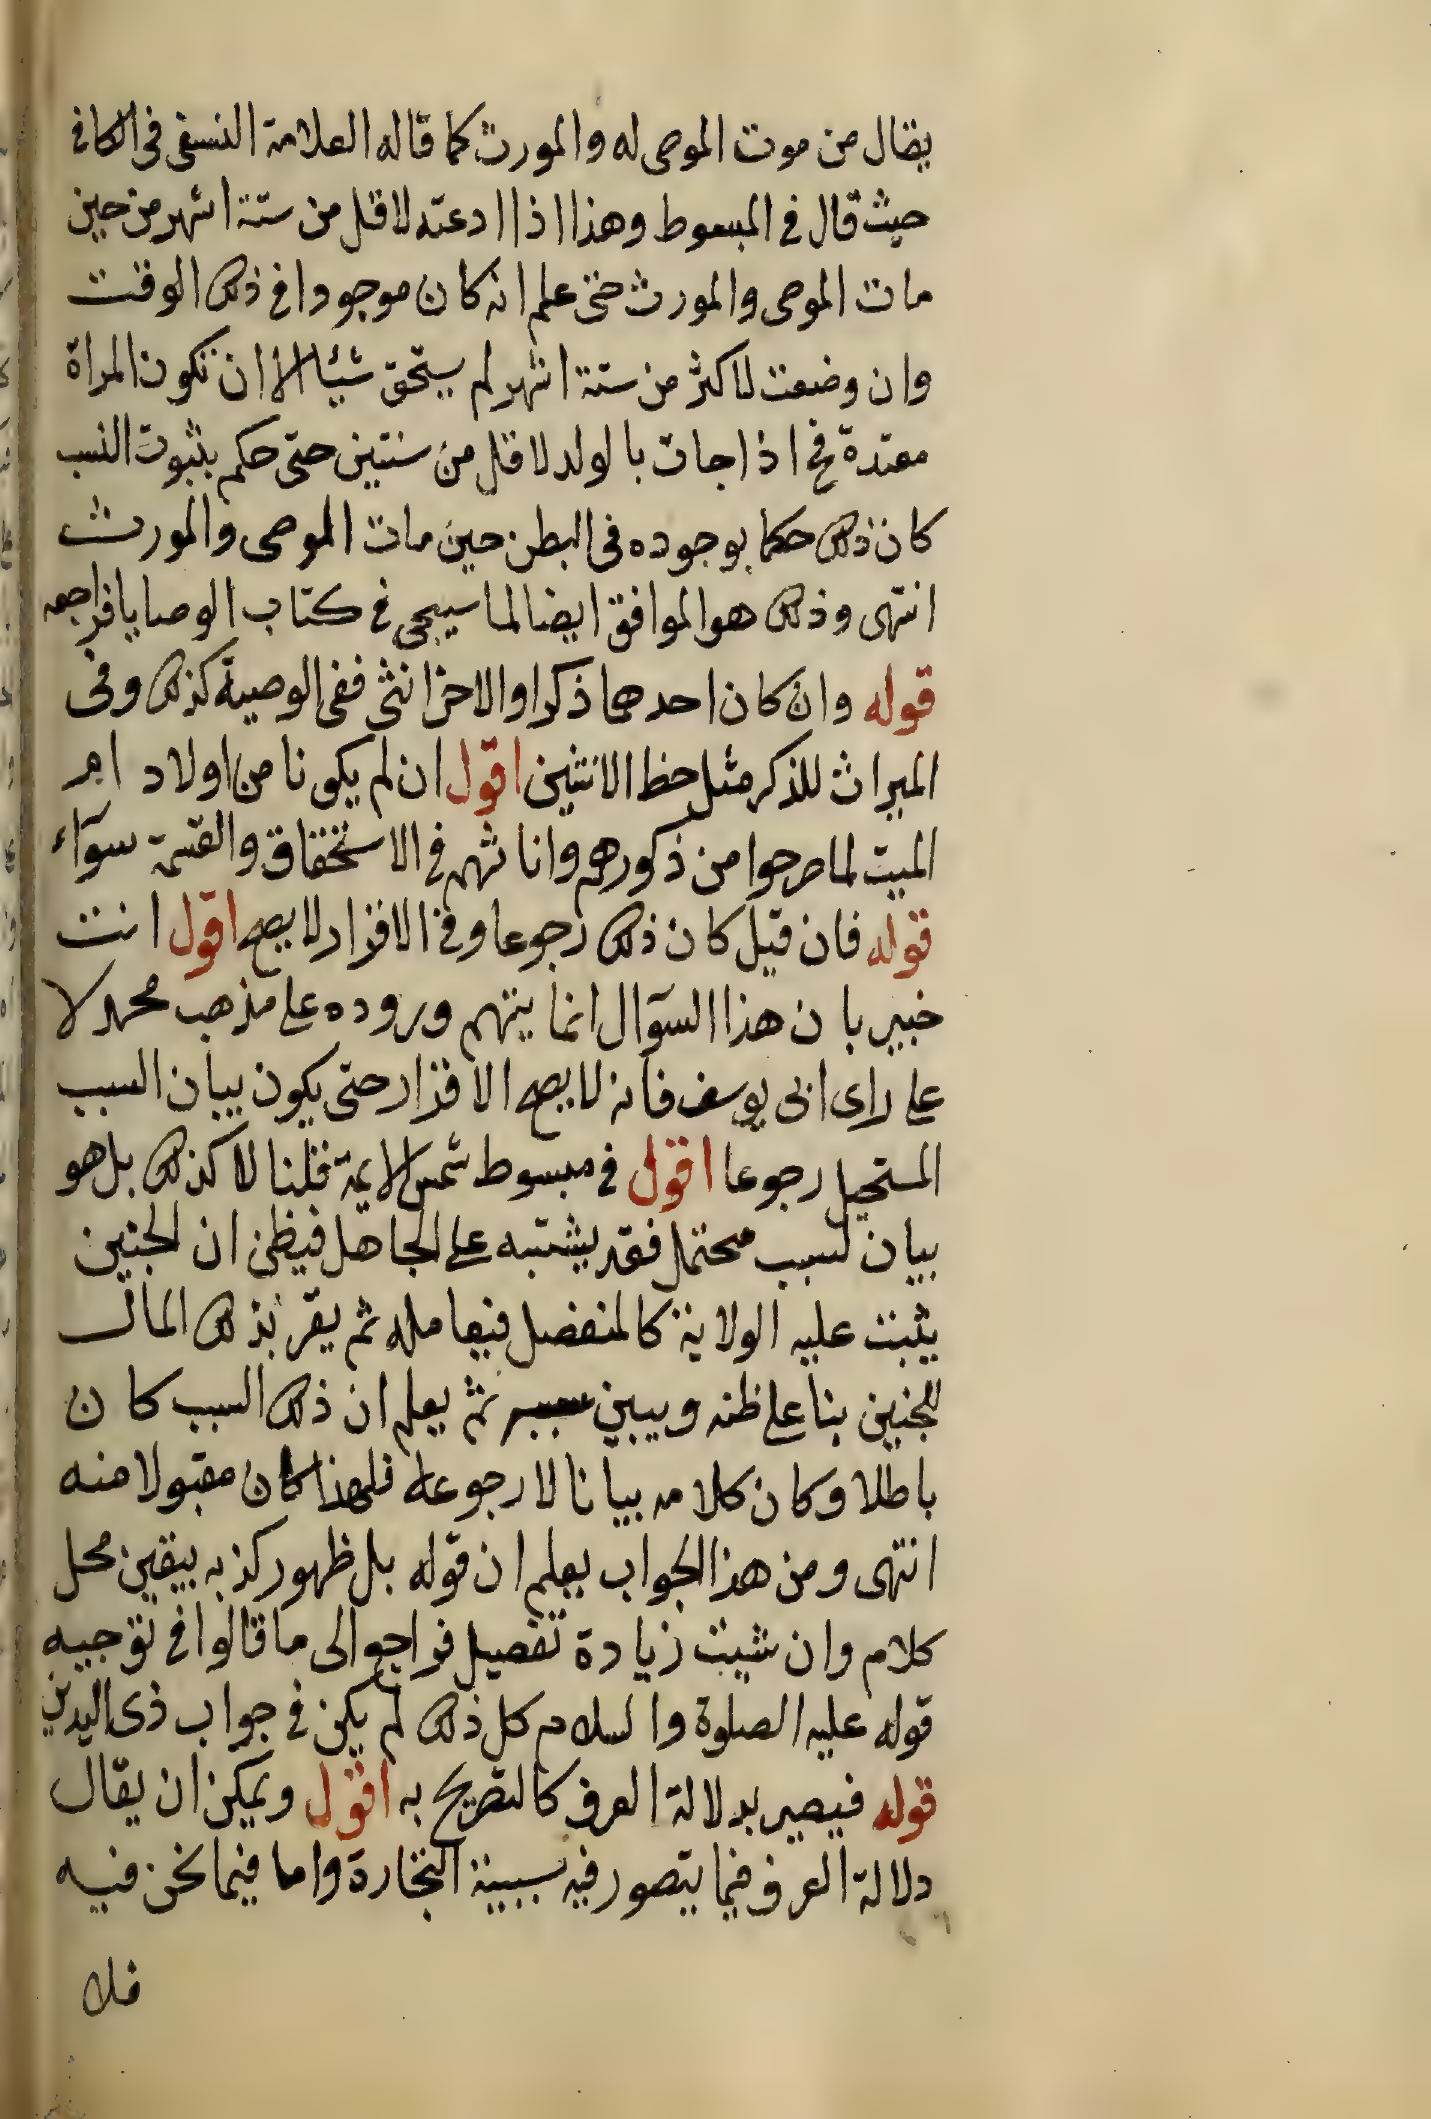 يقال من موت الموصى له والمورث كما قاله العلامة النسفى فى الكافى
حيث قال فى المبسوط وهذا اذا ادعته لاقل من ستة اشهر من حين
مات الموصى والمورث حتى علم انه كان موجودا فى ذلك الوقت
وان وضعت لاكثر من ستة اشهر لم يستحق شيئا الا ان تكون المراة
معتدة فح اذا جات بالولد لاقل من سنتين حتى حكم بثبوت النسب
كان ذلك حكما بوجوده فى البطن حين مات الموصى والمورث
انتهى وذلك هو الموافق ايضا لما سيجى فى كتاب الوصايا فراجعه
قوله وان كان احدهما ذكرا والاخر انثى ففى الوصية كذلك وفى
الميراث للذكر مثل حظ الانثيين اقول ان لم يكونا من اولاد ام
الميت لما صرحوا من ذكورهم واناثهم فى الاستحقاق والقسمة سوآء
قوله فان قيل كان ذلك رجوعا وفى الاقرار لا يصح اقول انت
خبير بان هذا السوآل انما يتهم وروده على مذهب محمد لا
على راى ابى يوسف فانه لا يصح الاقرار حتى يكون بيان السبب
المستحيل رجوعا اقول فى مبسوط شمس الايمة قلنا لا كذلك بل هو
بيان لسبب محتمل فقد يشتبه على الجاهل فيظن ان الجنين
يثبت عليه الولاية كالمنفصل فيعامله ثم يقر بذلك المال
للجنين بنا على ظنه ويبين سببه ثم يعلم ان ذلك السبب كان
باطلا وكان كلامه بيانا لا رجوعا فلهذا كان مقبولا منه
انتهى ومن هذا الجواب يعلم ان قوله بل ظهور كذبه بيقين محل
كلام وان شيت زيادة تفصيل فراجع الى ما قالوا فى توجيه
قوله عليه الصلوة والسلام كل ذلك لم يكن فى جواب ذى اليدين
قوله فيصير بدلالة العرف كالتصريح به اقول ويمكن ان يقال
دلالة العرف فيما يتصور فيه سببية التجارة واما فيما نحن فيه
فلا